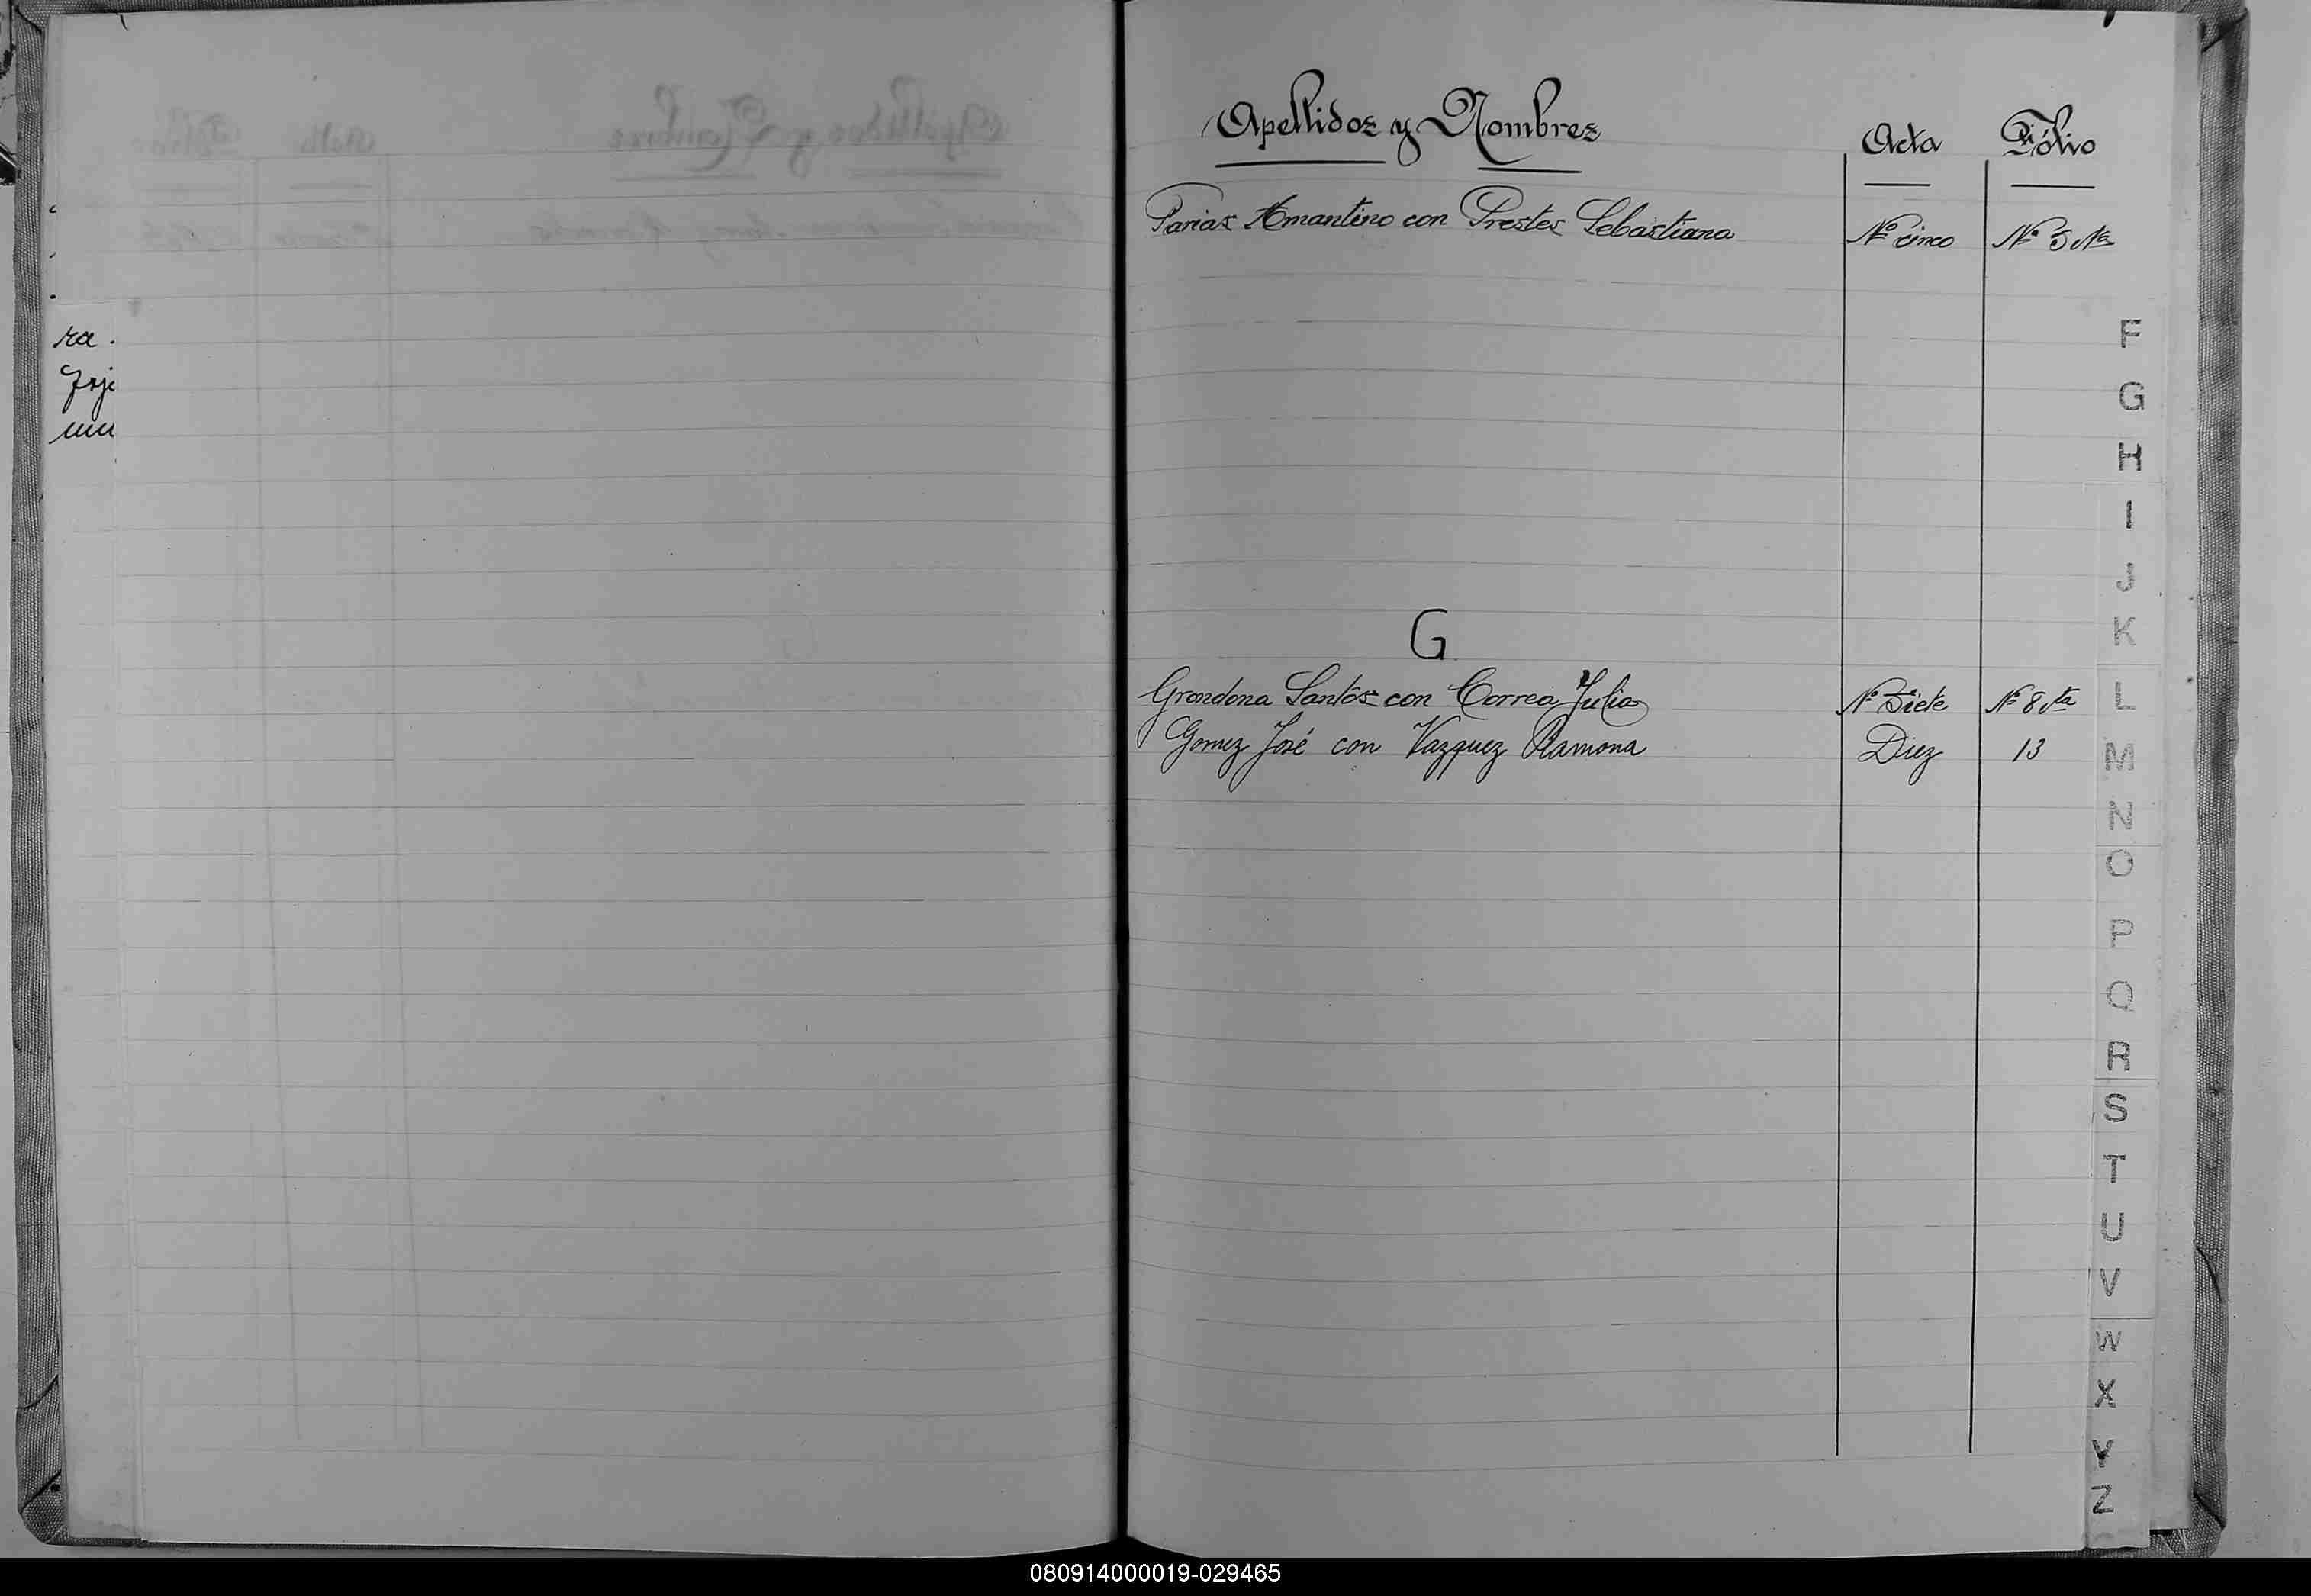 ra.
Apellidos y Nombres Acta Fólio
Farias Amantino con Prestes Sebastiana Nº cinco Nº 5 vta
F
G
H
I
J
K
G
Grondona Santos con Correa Julia Nº Siete Nº 8 vta L
Gomez José con Vazquez Ramona Diez 13 M
N
O
P
Q
R
S
T
U
V
W
X
Y
Z
080914000019-029465